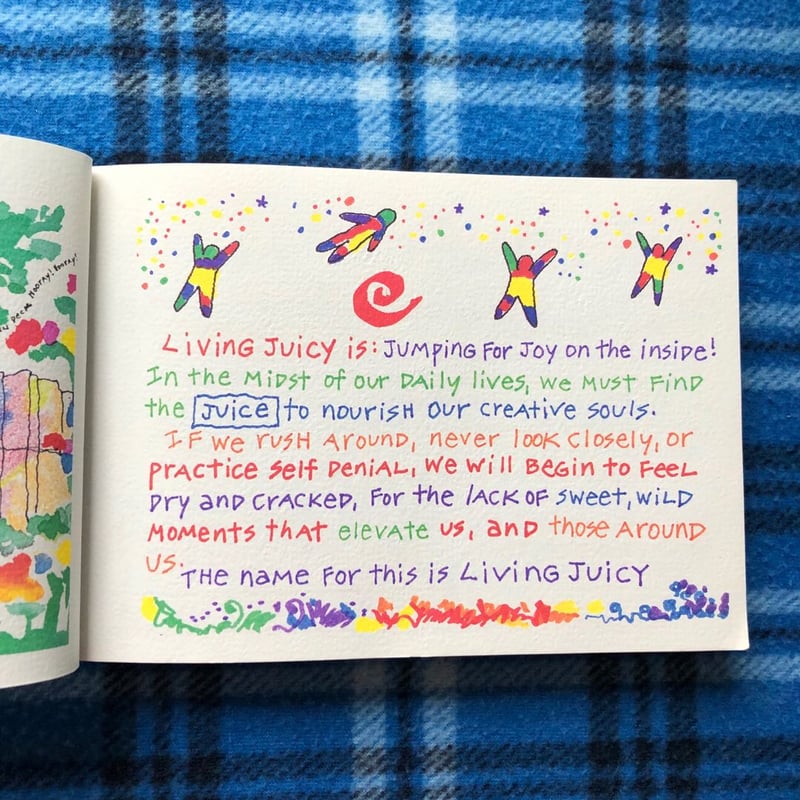 Hooray! Hooray!
Living Juicy is: Jumping for Joy on the inside!
In the midst of our daily lives, we must find
the Juice to nourish our creative souls.
If we rush around, never look closely, or
practice self denial, we will begin to feel
dry and cracked, for the lack of sweet, wild
moments that elevate us, and those around
us.
The name for this is Living Juicy